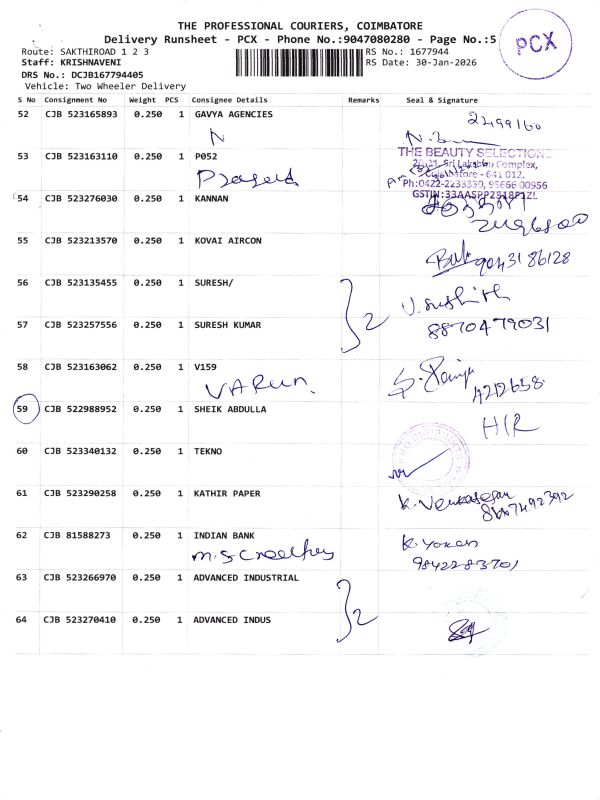 THE PROFESSIONAL COURIERS, COIMBATORE
Delivery Runsheet - PCX - Phone No.:9047080280 - Page No.:5
PCX
Route: SAKTHIROAD 1 2 3
RS No.: 1677944
Staff: KRISHNAVENI
RS Date: 30-Jan-2026
DRS No.: DCJB167794405
Vehicle: Two Wheeler Delivery
S No Consignment No Weight PCS Consignee Details Remarks Seal & Signature
52 CJB 523165893 0.250 1 GAVYA AGENCIES
2499160
N
53 CJB 523163110 0.250 1 P052
THE BEAUTY SELECTIONS
Sri Lakshmi Complex,
Coimbatore - 641 012.
Ph:0422-2233330, 95666 00956
Prasad
54 CJB 523276030 0.250 1 KANNAN
55 CJB 523213570 0.250 1 KOVAI AIRCON
9043186128
56 CJB 523135455 0.250 1 SURESH/
2
57 CJB 523257556 0.250 1 SURESH KUMAR
8870479031
58 CJB 523163062 0.250 1 V159
VARUN.
4212658
59 CJB 522988952 0.250 1 SHEIK ABDULLA
H/R
60 CJB 523340132 0.250 1 TEKNO
61 CJB 523290258 0.250 1 KATHIR PAPER
K. Venkatesan
62 CJB 81588273 0.250 1 INDIAN BANK
9842283701
63 CJB 523266970 0.250 1 ADVANCED INDUSTRIAL
2
64 CJB 523270410 0.250 1 ADVANCED INDUS